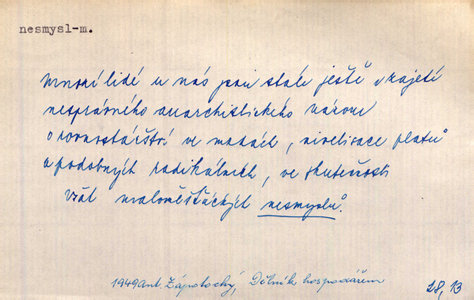 nesmysl-m.
Mnozí lidé u nás jsou stále ještě v zajetí
nesprávného anarchistického názoru
o rovnostářství ve mzdách, nivelisace platů
a podobných radikálních, ve skutečnosti
však maloměšťáckých nesmyslů.
1949 Ant. Zápotocký, Dělník hospodářem
28, 13